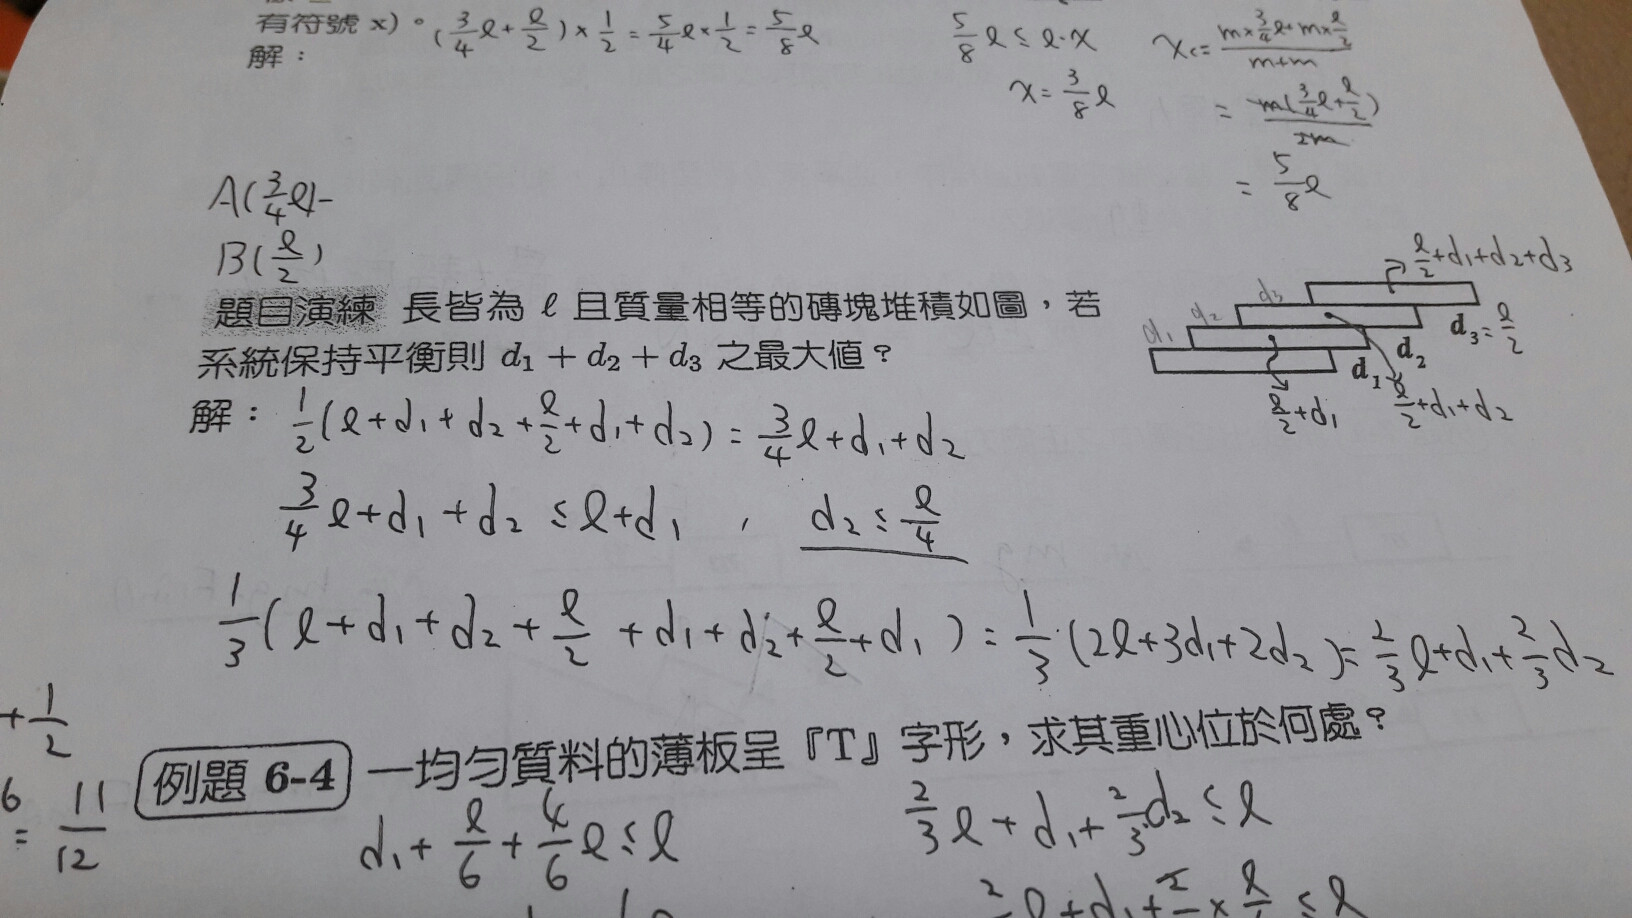 有符號 x)。(3/4 ℓ + ℓ/2) × 1/2 = 5/4 ℓ × 1/2 = 5/8 ℓ
解：
5/8 ℓ ≤ ℓ-x
x = 3/8 ℓ
Xc = (m×3/4 ℓ + m×ℓ/2)/(m+m)
= m(3/4 ℓ + ℓ/2)/2m
= 5/8 ℓ
A(3/4 ℓ)-
B(ℓ/2)
題目演練 長皆為 ℓ 且質量相等的磚塊堆積如圖，若
系統保持平衡則 d₁ + d₂ + d₃ 之最大值？
ℓ/2+d₁+d₂+d₃
d₃
d₂
d₁
d₃ = ℓ/2
d₂
d₁
ℓ/2+d₁
ℓ/2+d₁+d₂
解：1/2(ℓ+d₁+d₂+ℓ/2+d₁+d₂) = 3/4 ℓ+d₁+d₂
3/4 ℓ+d₁+d₂ ≤ ℓ+d₁ , d₂ ≤ ℓ/4
1/3(ℓ+d₁+d₂+ℓ/2+d₁+d₂+ℓ/2+d₁) = 1/3(2ℓ+3d₁+2d₂) = 2/3 ℓ+d₁+2/3 d₂
+1/2
6
= 11/12
例題 6-4 一均勻質料的薄板呈『T』字形，求其重心位於何處？
d₁+ℓ/6+4/6 ℓ ≤ ℓ
2/3 ℓ+d₁+2/3 d₂ ≤ ℓ